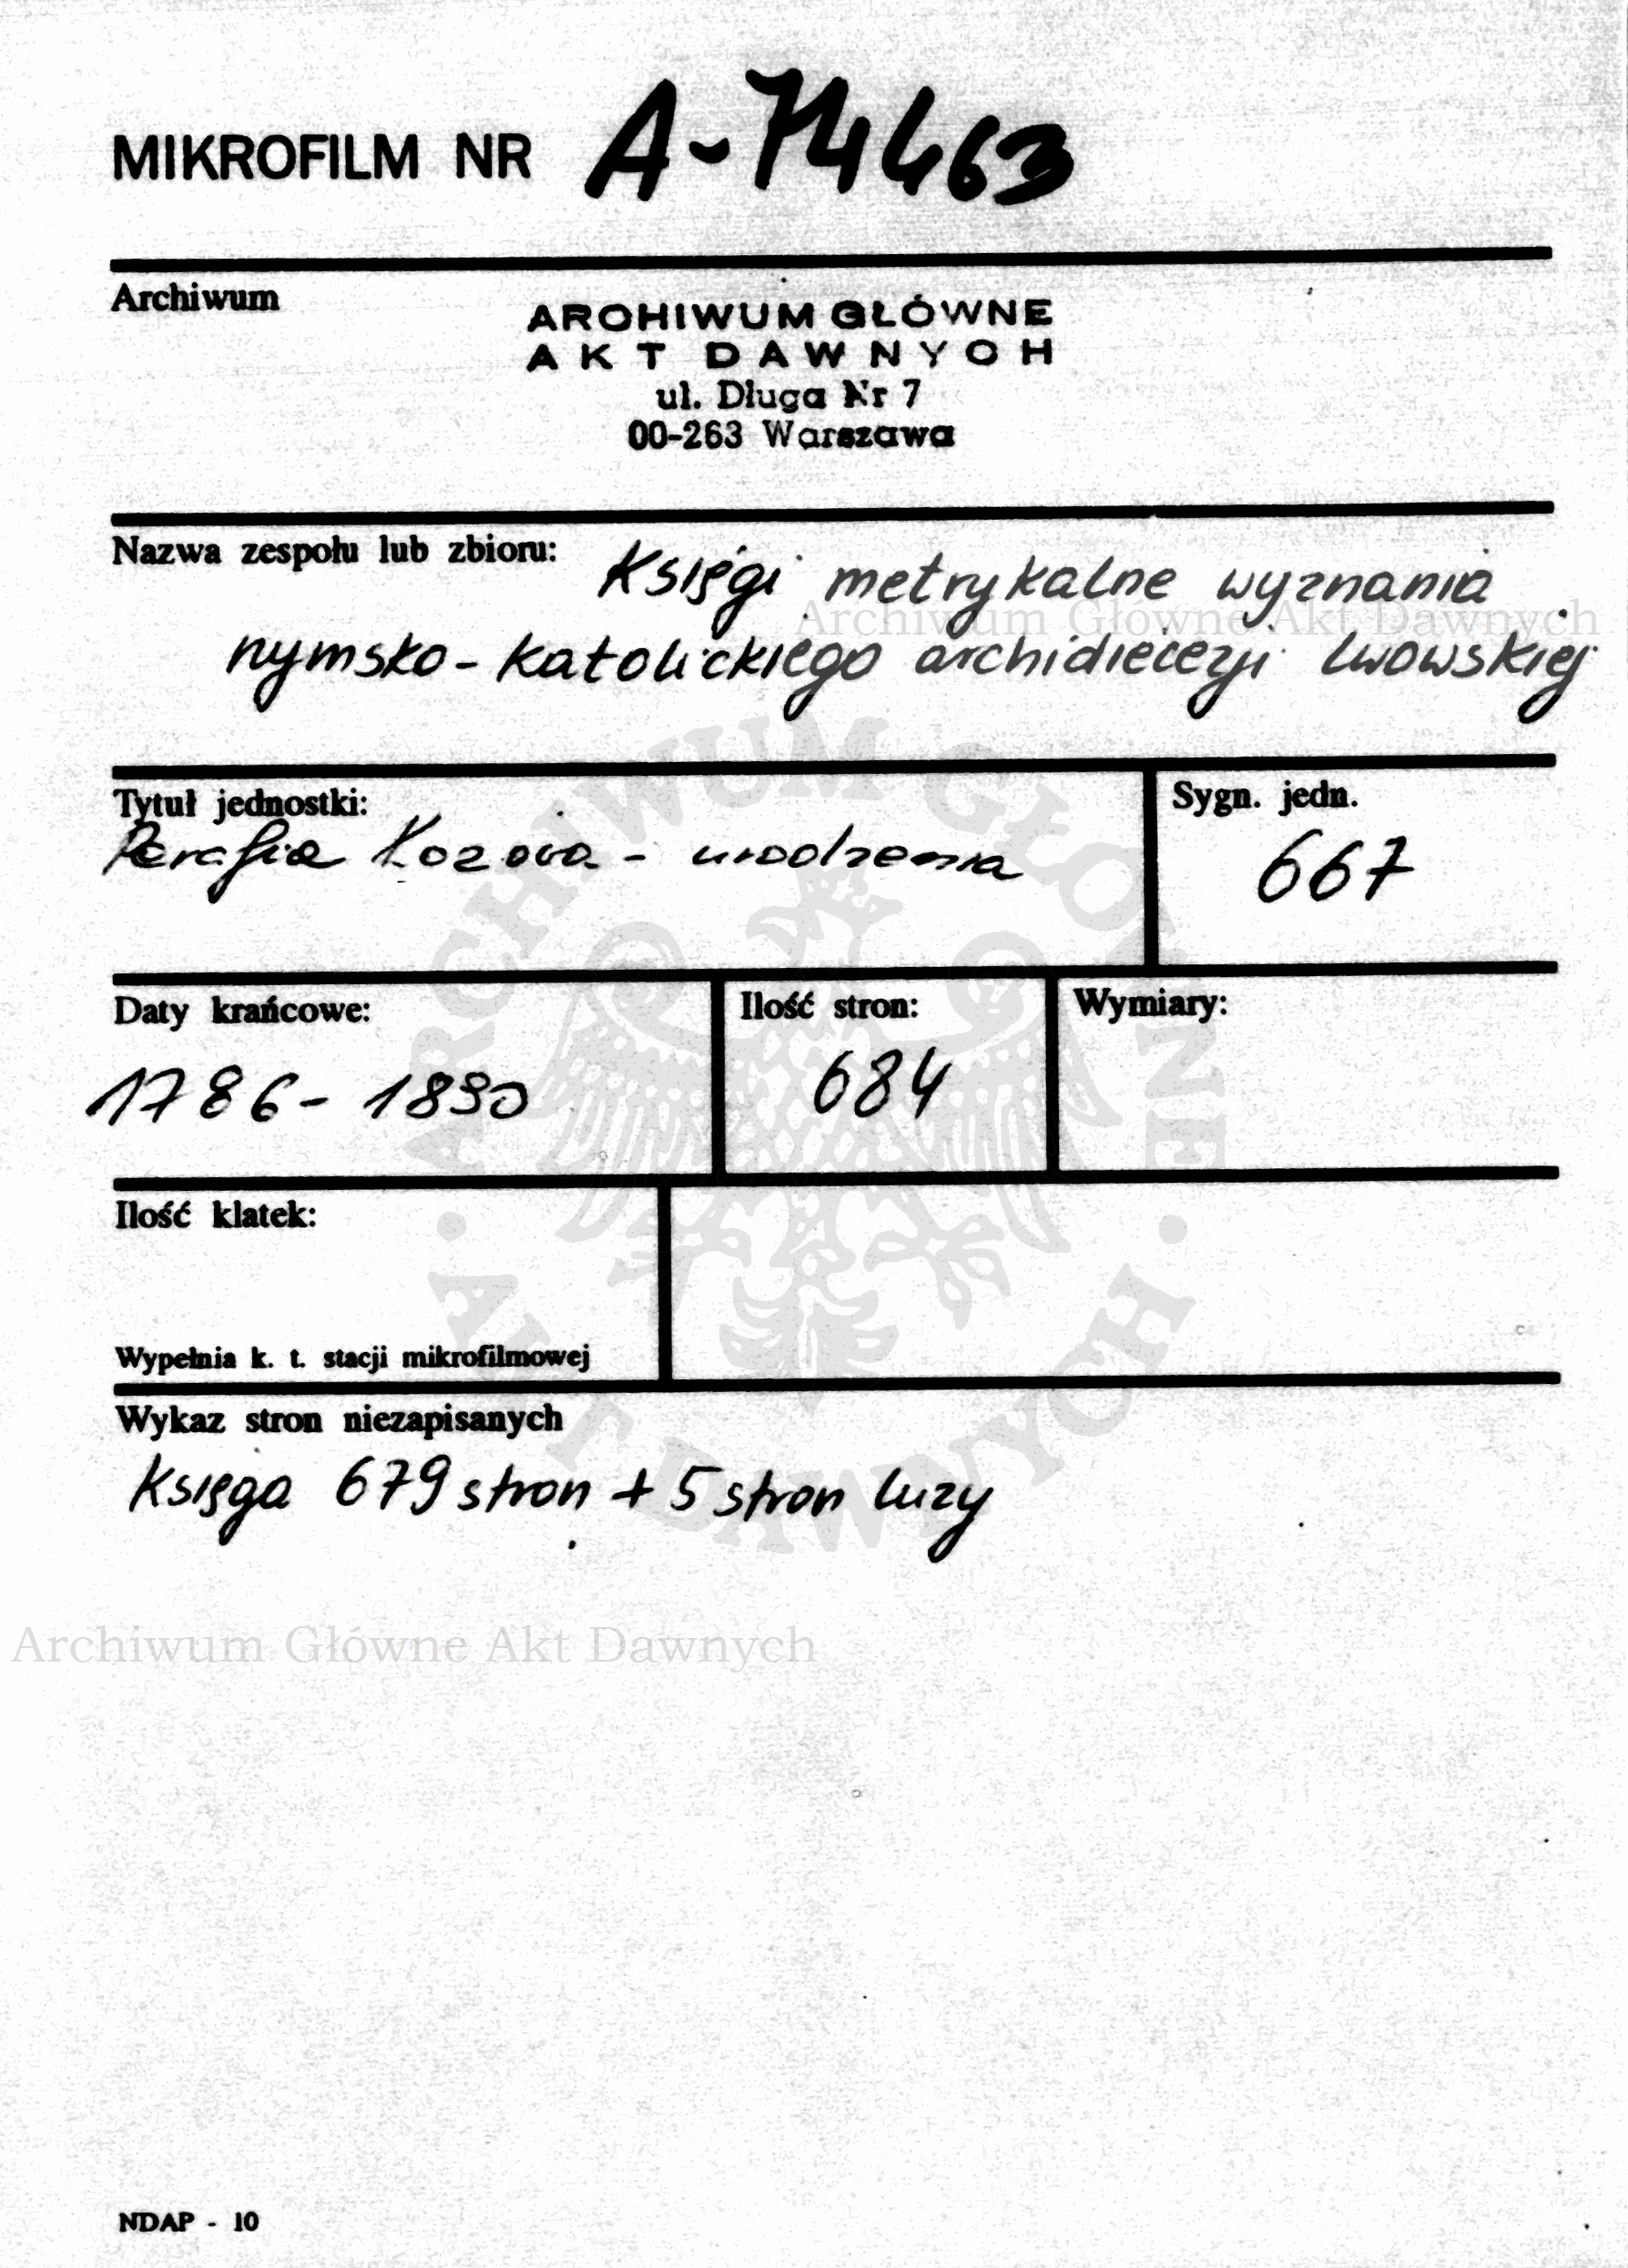 MIKROFILM NR A-74463
Archiwum
ARCHIWUM GŁÓWNE
AKT DAWNYCH
ul. Długa Nr 7
00-263 Warszawa
Nazwa zespołu lub zbioru: Księgi metrykalne wyznania
Archiwum Główne Akt Dawnych
rzymsko-katolickiego archidiecezji lwowskiej
Tytuł jednostki:
Parafia Kozowa - urodzenia
Sygn. jedn.
667
Daty krańcowe:
1786 - 1830
Ilość stron:
684
Wymiary:
Ilość klatek:
Wypełnia k. t. stacji mikrofilmowej
Wykaz stron niezapisanych
Księga 679 stron + 5 stron luzy
ARCHIWUM GŁÓWNE · AKT DAWNYCH ·
Archiwum Główne Akt Dawnych
NDAP - 10